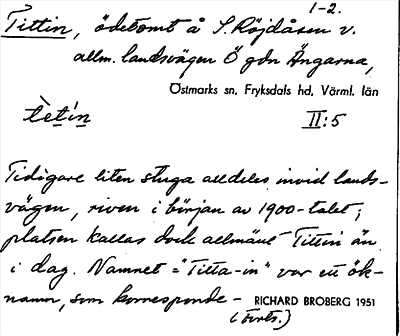 1-2.
Tittin, ödetomt å S. Röjdåsen v.
allm. landsvägen Ö gdn Ängarna,
Östmarks sn, Fryksdals hd, Värml. län
tètín
II:5
Tidigare liten stuga alldeles invid lands-
vägen, riven i början av 1900-talet;
platsen kallas dock allmänt Tittin än
i dag. Namnet = "Titta-in" var ett ök-
namn, som korresponde-
RICHARD BROBERG 1951
(Forts.)